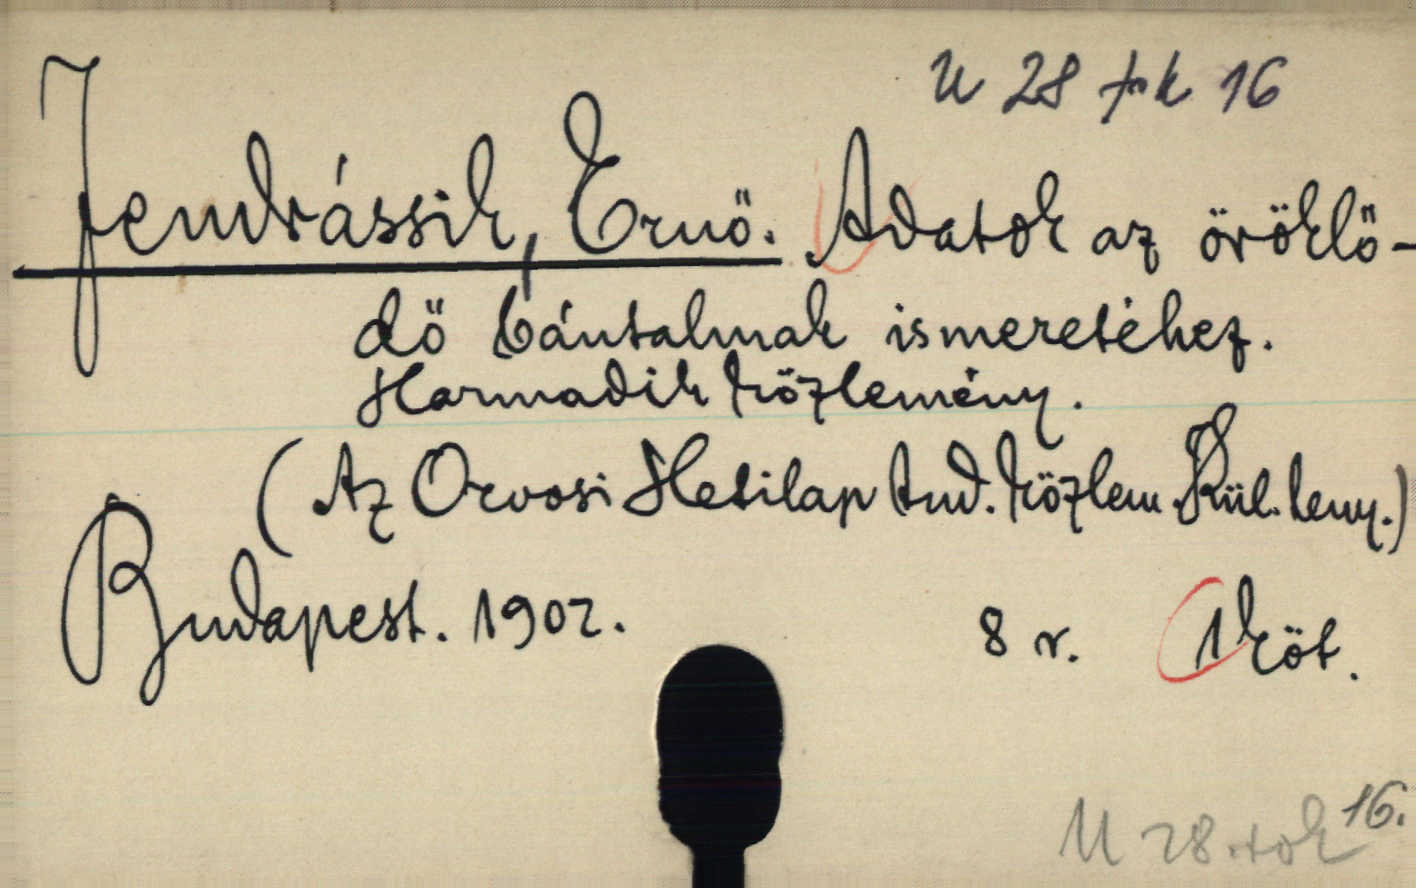 U 28 tok 16
Jendrássik, Ernő. Adatok az öröklő-
dő bántalmak ismeretéhez.
Harmadik közlemény.
(Az Orvosi Hetilap tud. közlem. Kül. leny.)
Budapest. 1902.
8 r. 1 köt.
U 28. tok 16.